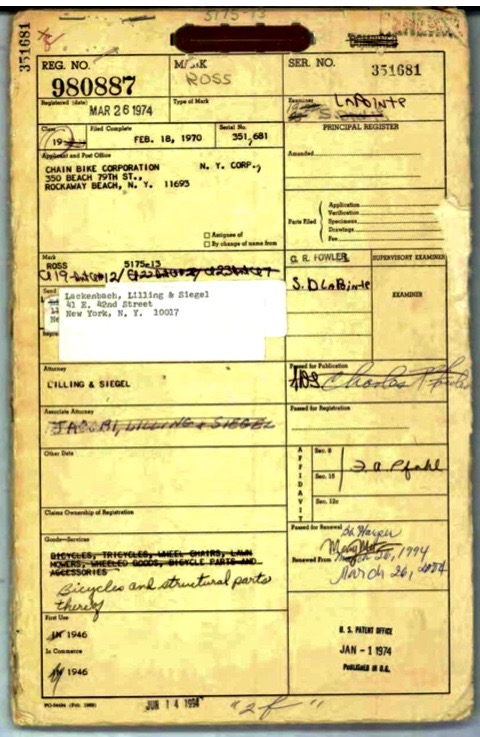 5175-13
351681
REG. NO.
980887
MARK
ROSS
SER. NO.
351681
Registered (date)
MAR 26 1974
Type of Mark
Examiner
LaPointe
Class
19
Filed Complete
FEB. 18, 1970
Serial No.
351,681
PRINCIPAL REGISTER
Applicant and Post Office
CHAIN BIKE CORPORATION N. Y. CORP.,
350 BEACH 79TH ST.,
ROCKAWAY BEACH, N. Y. 11693
Amended
Parts Filed
Application
Verification
Specimens
Drawings
Fee
Assignee of
By change of name from
Mark
ROSS 5175-13
G. R. FOWLER
SUPERVISORY EXAMINER
S. D. LaPointe
EXAMINER
Send
Lackenbach, Lilling & Siegel
41 E. 42nd Street
New York, N. Y. 10017
Attorney
LILLING & SIEGEL
Passed for Publication
Associate Attorney
JACOBI, LILLING & SIEGEL
Passed for Registration
Other Data
AFFIDAVIT
Sec. 8
Sec. 15
Sec. 12c
J. A. Pfahl
Claims Ownership of Registration
Goods—Services
BICYCLES, TRICYCLES, WHEEL CHAIRS, LAWN
MOWERS, WHEELED GOODS, BICYCLE PARTS AND
ACCESSORIES
Bicycles and structural parts
thereof
Passed for Renewal
Renewed From
March 26, 1994
March 26, 2004
First Use
IN 1946
In Commerce
1946
U. S. PATENT OFFICE
JAN - 1 1974
PUBLISHED IN O.G.
PO-0449A (Feb. 1969)
JUN 14 1994
"2f"